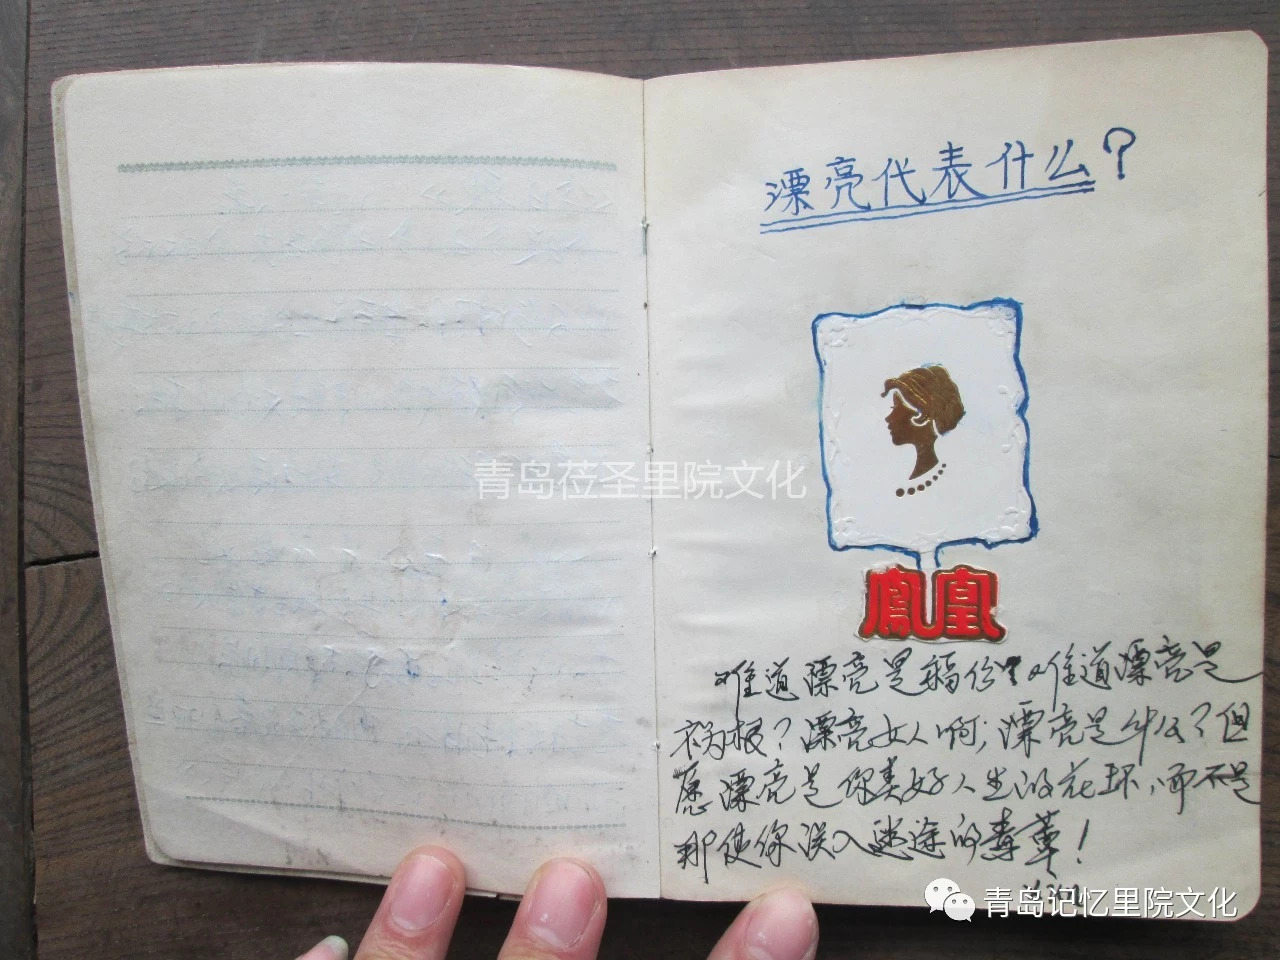 漂亮代表什么?
鳳凰
难道漂亮是福份?难道漂亮是
祸根?漂亮女人啊,漂亮是什么?但
愿漂亮是你美好人生的花环,而不是
那使你误入迷途的毒草!
青岛莅圣里院文化
青岛记忆里院文化